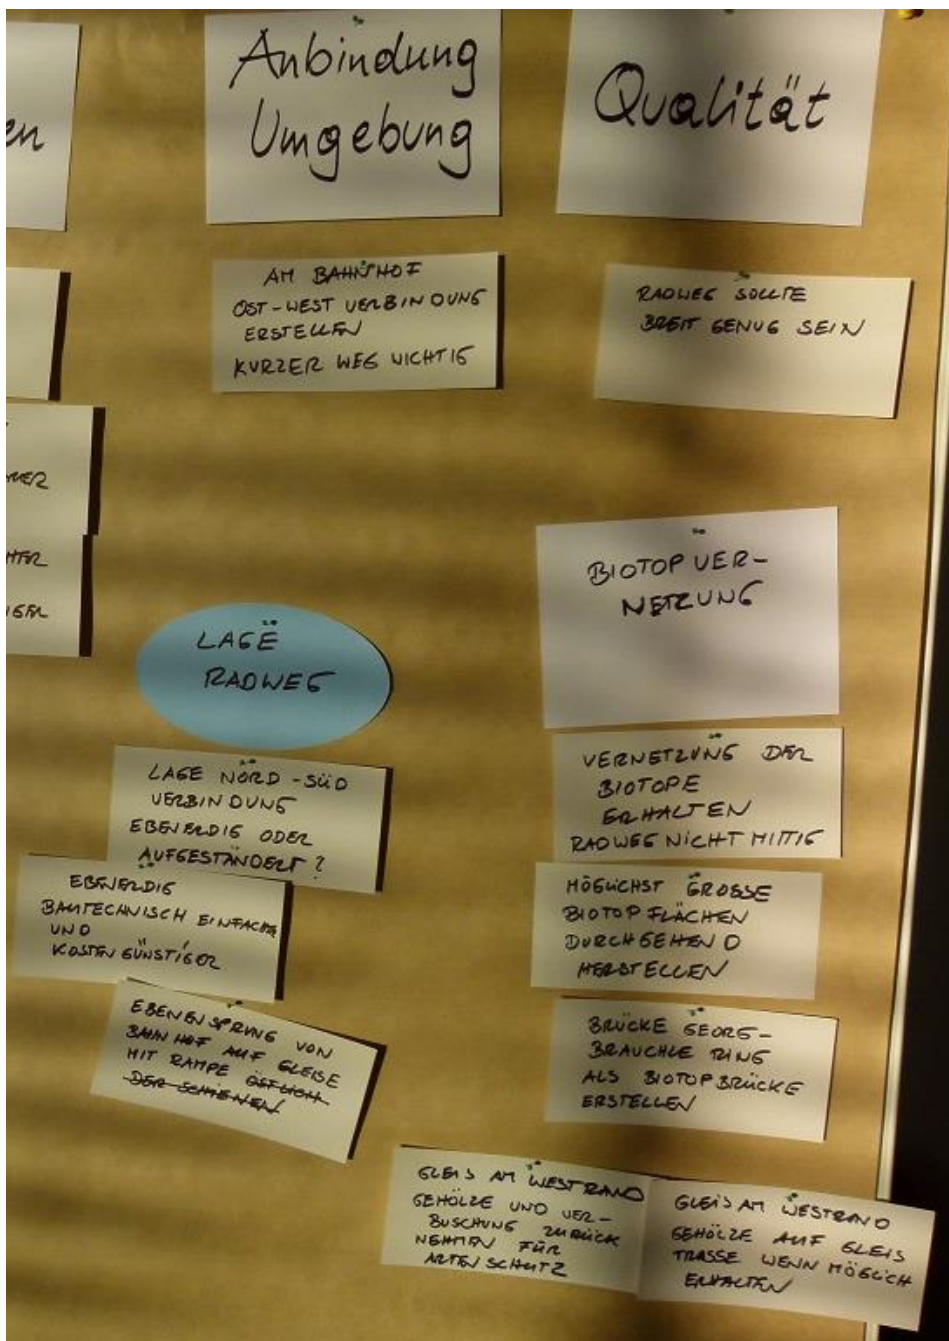 en
Anbindung
Umgebung
Qualität
AM BAHNHOF
OST-WEST VERBINDUNG
ERSTELLEN
KURZER WEG WICHTIG
RADWEG SOLLTE
BREIT GENUG SEIN
HTER
IGER
LAGE
RADWEG
LAGE NORD-SÜD
VERBINDUNG
EBENERDIG ODER
AUFGESTÄNDERT?
EBENERDIG
BAUTECHNISCH EINFACHER
UND
KOSTENGÜNSTIGER
EBENENSPRUNG VON
BAHNHOF AUF GLEISE
MIT RAMPE ÖSTLICH
DER SCHIENEN
BIOTOPVER-
NETZUNG
VERNETZUNG DER
BIOTOPE
ERHALTEN
RADWEG NICHT MITTIG
MÖGLICHST GROSSE
BIOTOPFLÄCHEN
DURCHGEHEND
HERSTELLEN
BRÜCKE GEORG-
BRAUCHLE RING
ALS BIOTOPBRÜCKE
ERSTELLEN
GLEIS AM WESTRAND
GEHÖLZE UND VER-
BUSCHUNG ZURÜCK
NEHMEN FÜR
ARTENSCHUTZ
GLEIS AM WESTRAND
GEHÖLZE AUF GLEIS
TRASSE WENN MÖGLICH
ERHALTEN